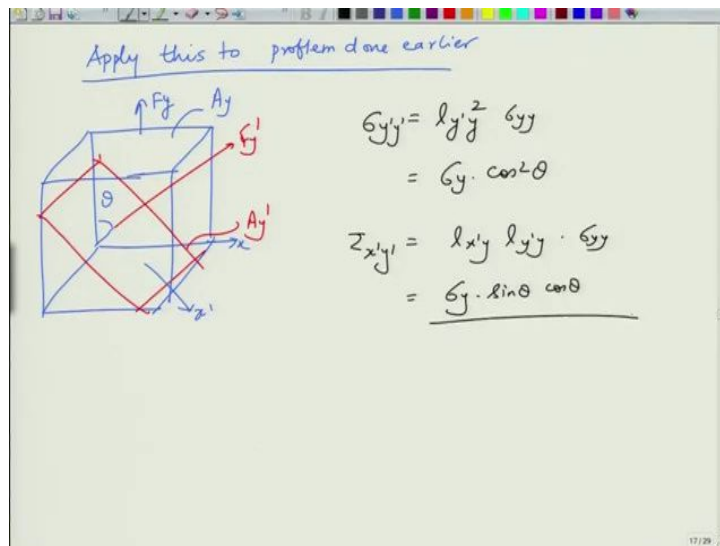 Apply this to problem done earlier
Fy
Ay
Fy'
θ
Ay'
x
x'
σy'y' = ly'y² σyy
= σy · cos²θ
τx'y' = lx'y ly'y · σyy
= σy · sinθ cosθ
17/29